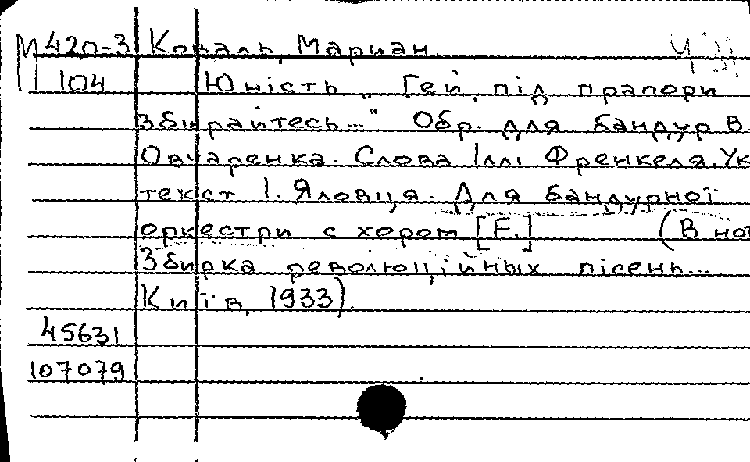 М 420-3 Коваль, Мариан
104 Юність „ Гей, під прапори
збирайтесь..." Обр. для бандур В.
Овчаренка. Слова Іллі Френкеля. Ук
текст І. Яловця. Для бандурної
оркестри с хором [F.] (В но
Збирка революційных пісень...
Київ, 1933)
45631
107079